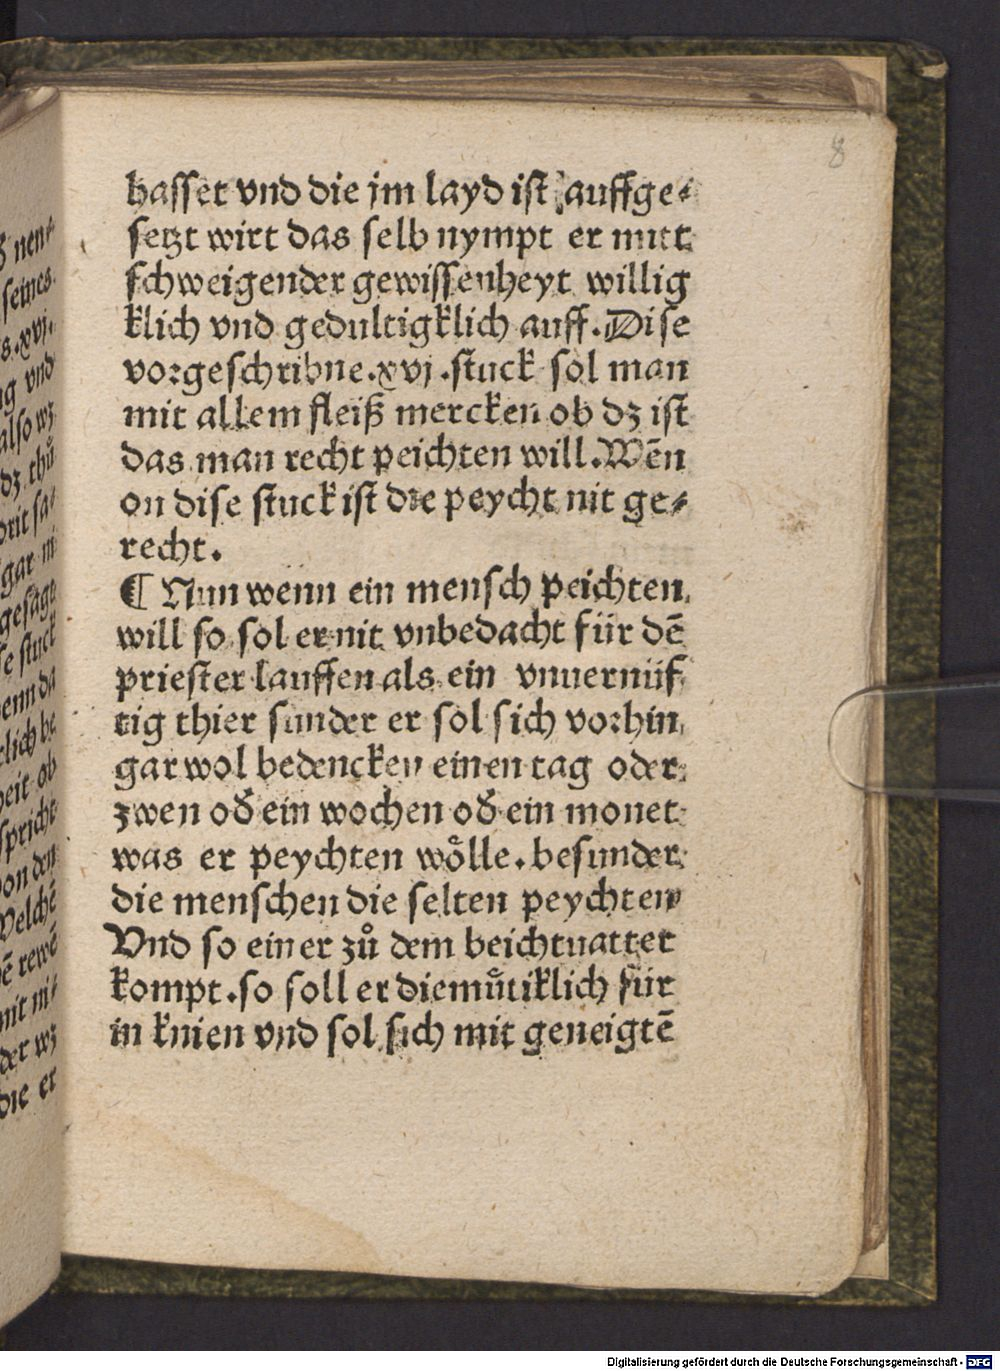 8
hasset vnd die jm layd ist auffge⸗
setzt wirt das selb nympt er mitt
schweigender gewissenheyt willig
klich vnd gedultigklich auff. Dise
vorgeschribne .xvj. stuck sol man
mit allem fleiß mercken ob dz ist
das man recht peichten will. Wēn
on dise stuck ist die peycht nit ge⸗
recht.
¶ Nun wenn ein mensch peichten
will so sol er nit vnbedacht für dē
priester lauffen als ein vnuernüf
tig thier sunder er sol sich vorhin
gar wol bedencken einen tag oder
zwen od̄ ein wochen od̄ ein monet
was er peychten woͤlle. besunder
die menschen die selten peychten
Vnd so einer zů dem beichtuatter
kompt. so soll er diemuͤtiklich für
in knien vnd sol sich mit geneigtē
nen⸗
seines
s. xvj.
vnd
also wz
dz thů
sa⸗
gar
stuck
enn da
lich be
ob
spricht
von den
Welchē
rewē
mit ni⸗
der wz
die er
Digitalisierung gefördert durch die Deutsche Forschungsgemeinschaft - DFG